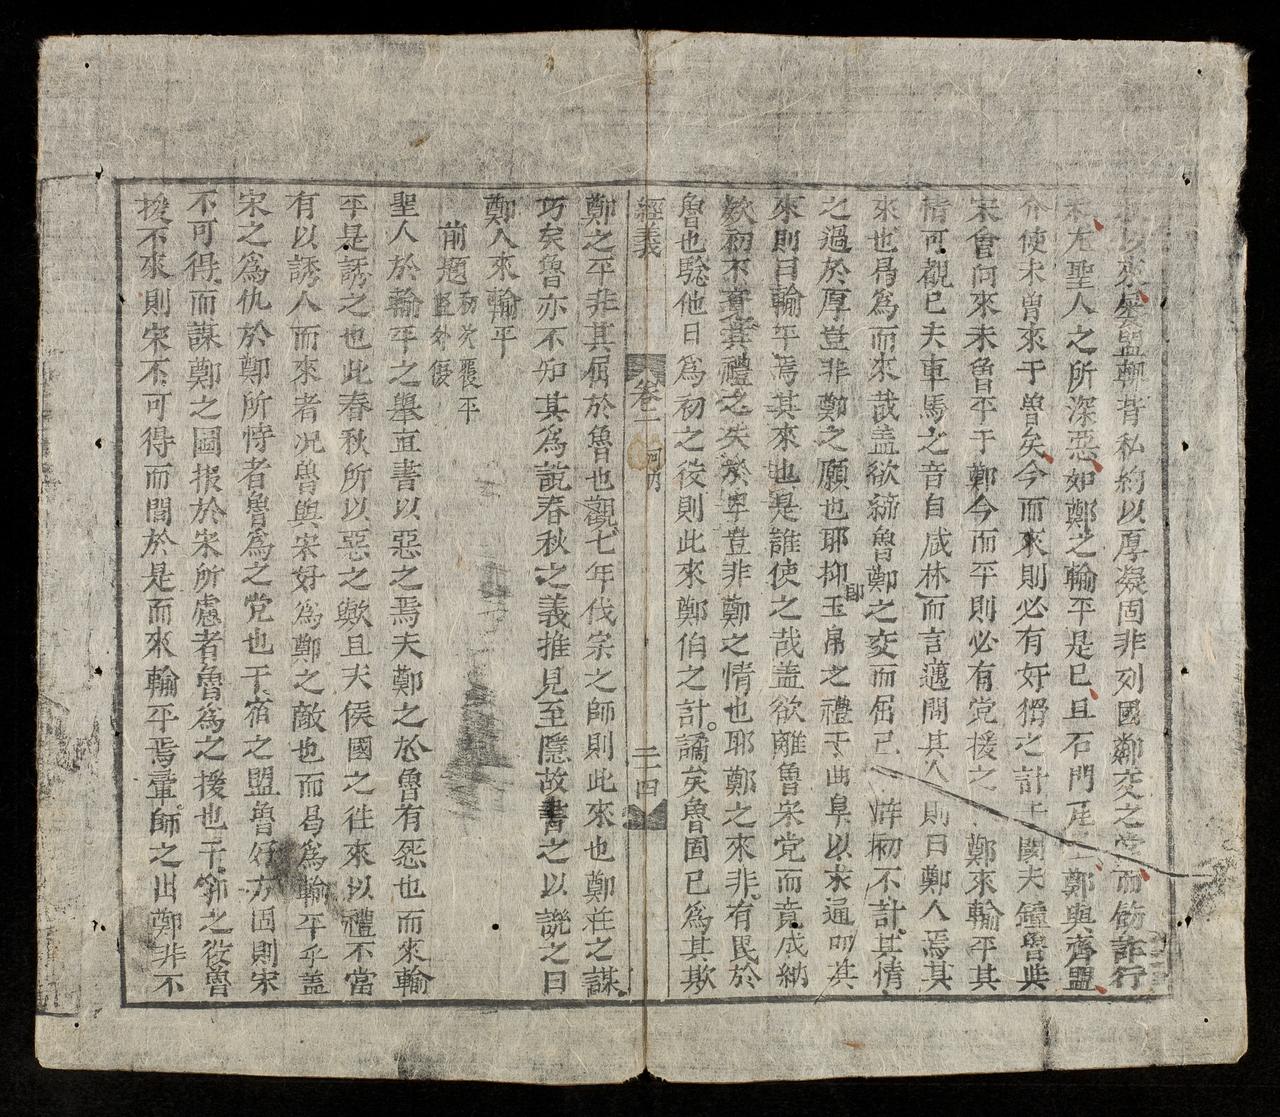 來尋盟輒背私約以厚凝固非列國鄰交之常而飾詐行
尤聖人之所深惡如鄭之輸平是已且石門尾一鄭與齊盟
使未曾來于魯矣今而來則必有奸猾之計于関夫鐘魯與
宋會何來未魯平于鄭今而平則必有党援之 鄭來輸平其
情可觀已夫車馬之音自咸林而言邁問其人則曰鄭人焉其
來也曷為而來哉盖欲締魯鄭之交而屈己 辭初不計其情
之過於厚豈非鄭之願也耶抑玉帛之禮于曲阜以求通叩其
來則曰輸平焉其來也是誰使之哉盖欲離魯宋党而竟成納
欵初不責其禮之失於卑豈非鄭之情也耶鄭之來非有畏於
魯也騐他日為初之役則此來鄭伯之計譎矣魯固已為其欺
經義 卷二 二十四
鄭之平非其屈於魯也觀七年伐宗之師則此來也鄭莊之謀
巧矣魯亦不知其為説春秋之義推見至隱故書之以説之曰
鄭人來輸平
前題
聖人於輸平之舉直書以惡之焉夫鄭之於魯有惡也而來輸
平是誘之也此春秋所以惡之歟且夫侯國之往來以禮不當
有以誘人而來者况魯與宋好為鄭之敵也而曷為輸平乎盖
宋之為仇於鄭所恃者魯為之党也于宿之盟魯好方固則宋
不可得而謀鄭之圖报於宋所慮者魯為之援也于郭之役魯
援不來則宋不可得而間於是而來輸平焉翬師之出鄭非不